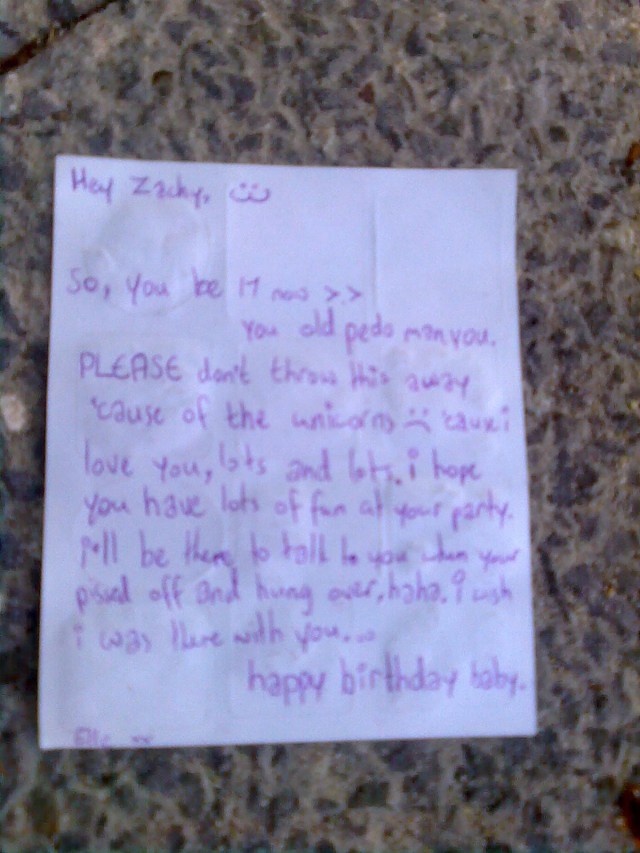 Hey Zacky, :)
So, you be 17 now >.>
You old pedo man you.
PLEASE don't throw this away
'cause of the unicorns :( 'cause i
love you, lots and lots. i hope
you have lots of fun at your party.
i'll be there to talk to you when your
pissed off and hung over. haha. i wish
i was there with you...
happy birthday baby.